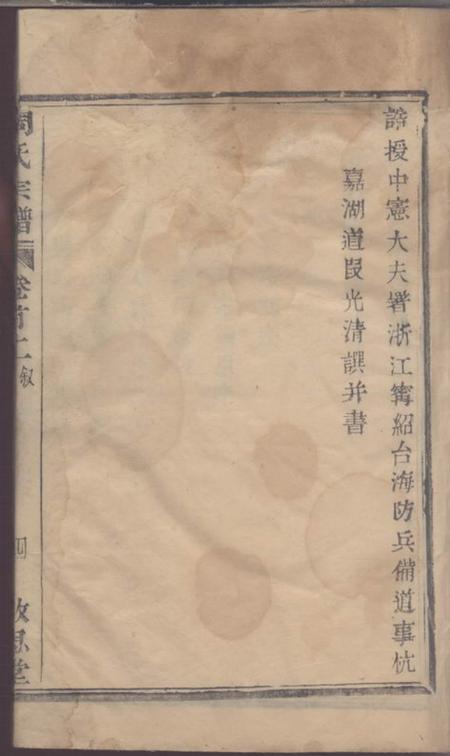 誥授中憲大夫署浙江寗紹台海防兵備道事杭
嘉湖道段光清譔并書
周氏宗譜 卷首上 叙 四 敬思堂